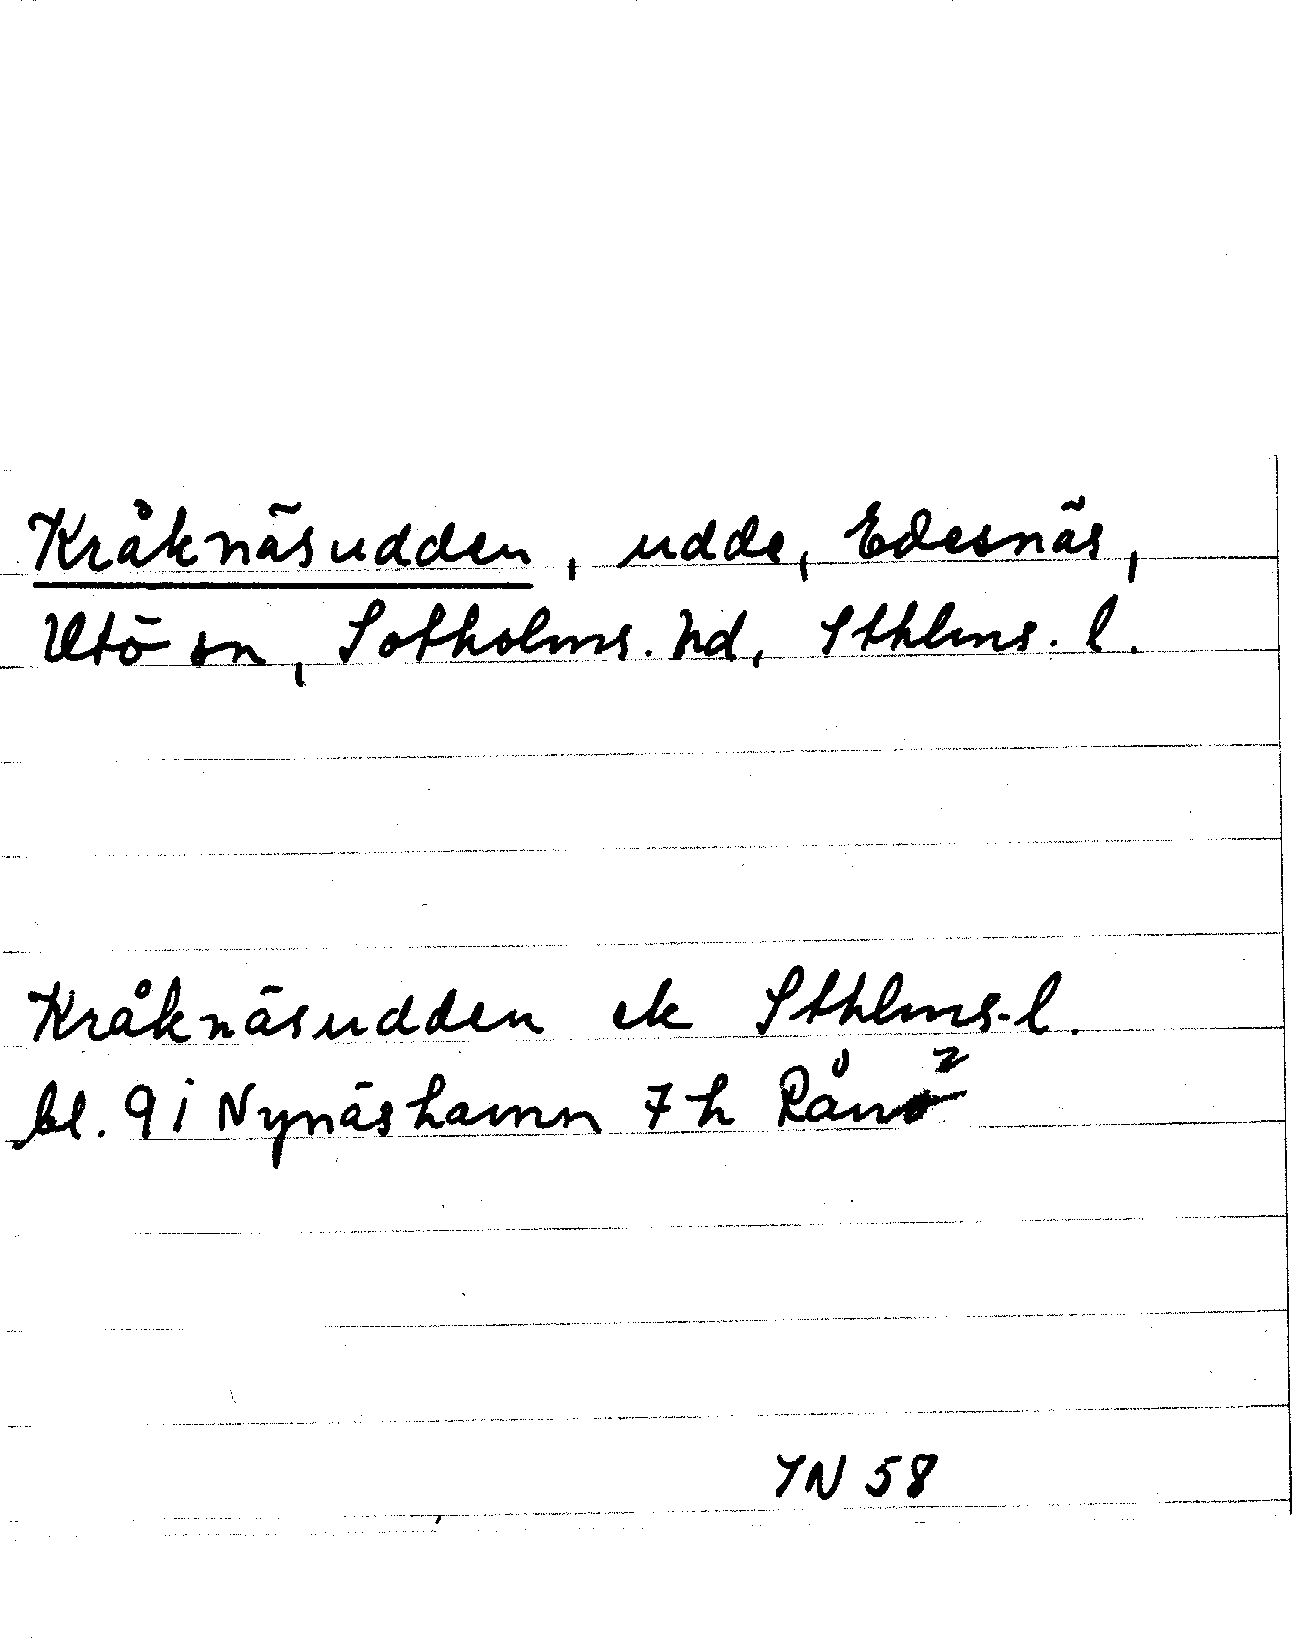 Kråknäsudden, udde, Edesnäs,
Utö sn, Sotholms. hd, Sthlms. l.
Kråknäsudden ek Sthlms-l.
bl. 9i Nynäshamn 7h Rånö
YN 58